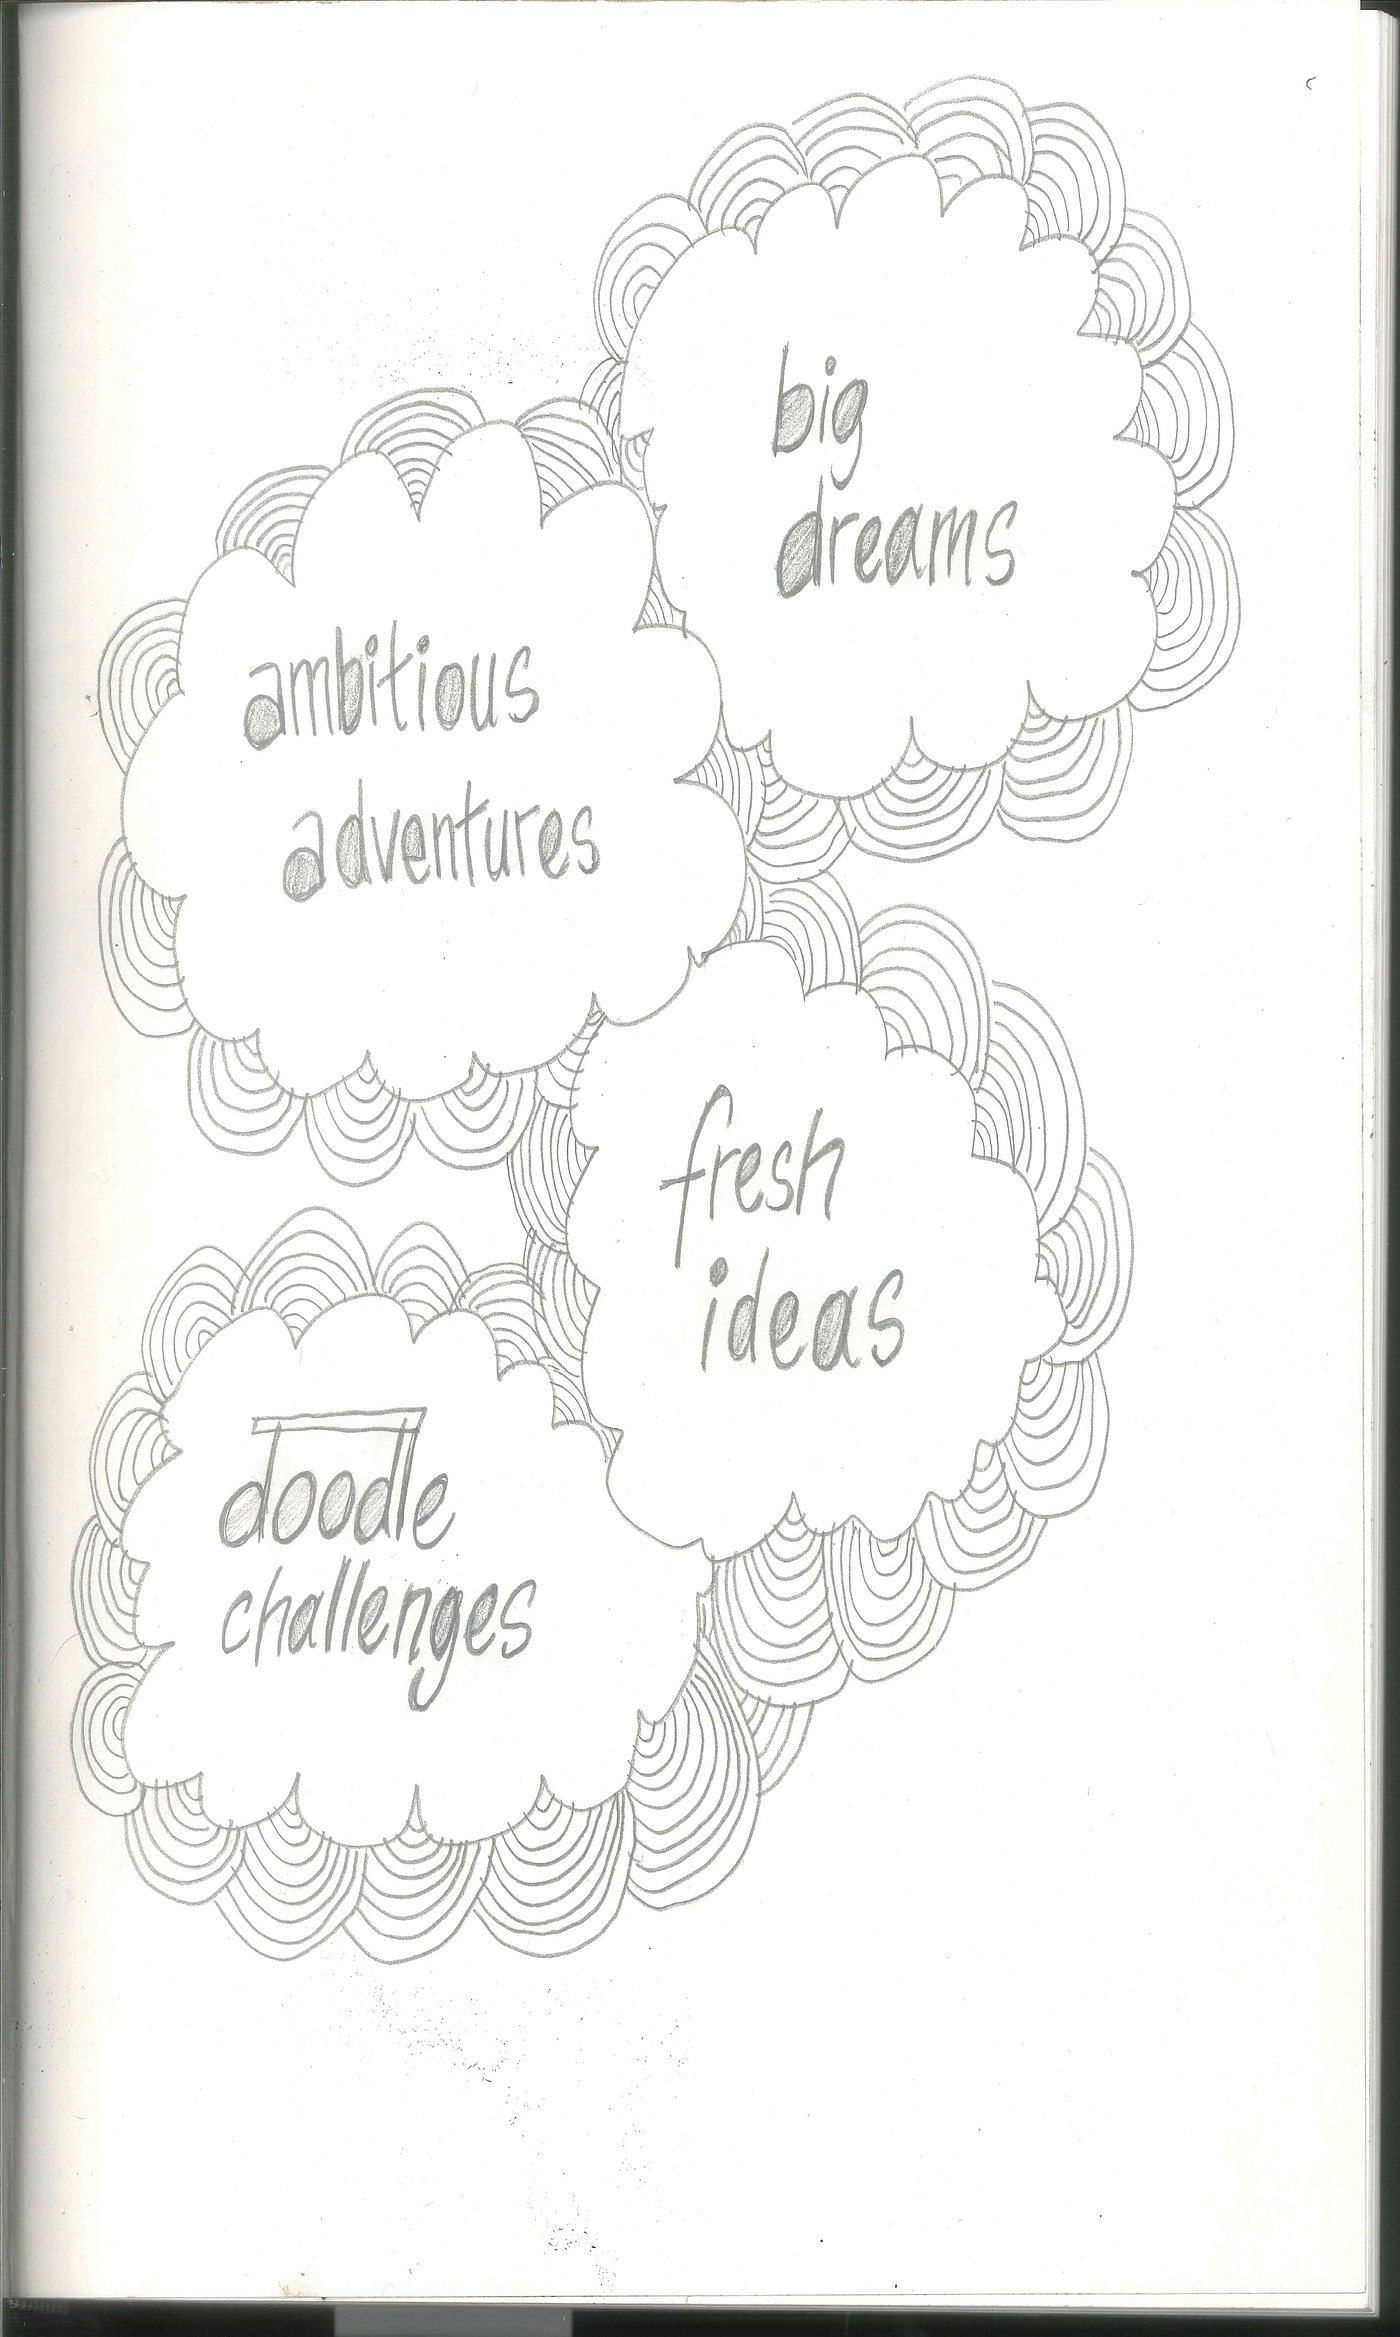 big
dreams
ambitious
adventures
fresh
ideas
doodle
challenges